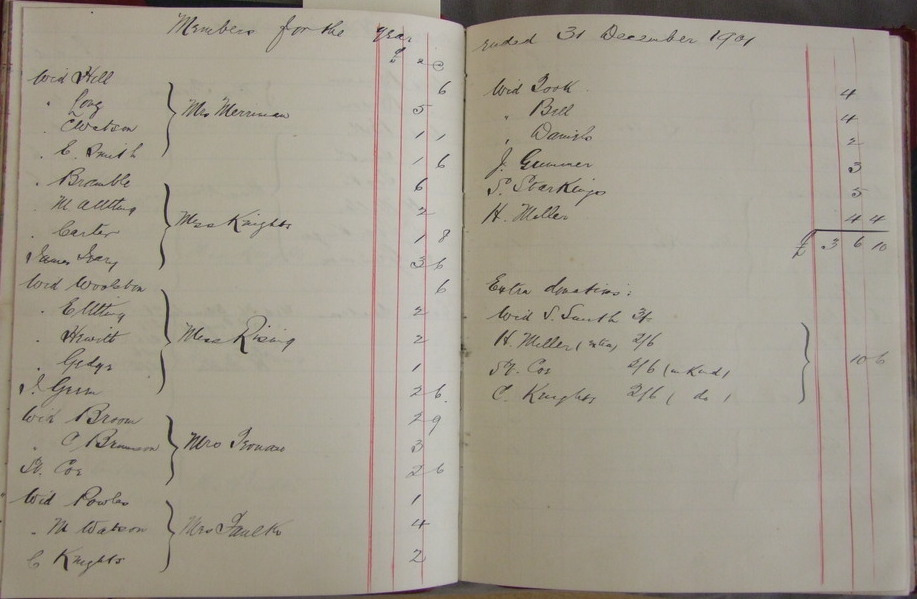 Members for the year
£ s d
Wid Hill 6
" Long 5
" C Watson 1 1
" E. Smith 1 6
Mrs Merriman
" Bramble 6
" M Allting 2
" Carter 1 8
James Ivory 3 6
Miss Knights
Wid Woolston 6
" E Utting 2
" Hewitt 2
" Gedge 1
J. Green 2 6
Miss Rising
Wid Broom 2 9
" C Brunson 3
W. Cox 2 6
Mrs
Wid Powles 1
" M Watson 4
C Knights 2
Mrs Faulk
ended 31 December 1901
Wid Took 4
" Bell 4
" Daniels 2
J. Gunner 3
S. Starkings 5
H. Miller 4 4
£ 3 6 10
Extra donations:
Wid S. Smith 3/-
H. Miller (extra) 2/6
W. Cox 2/6 (in kind)
C. Knights 2/6 ( do )
10 6